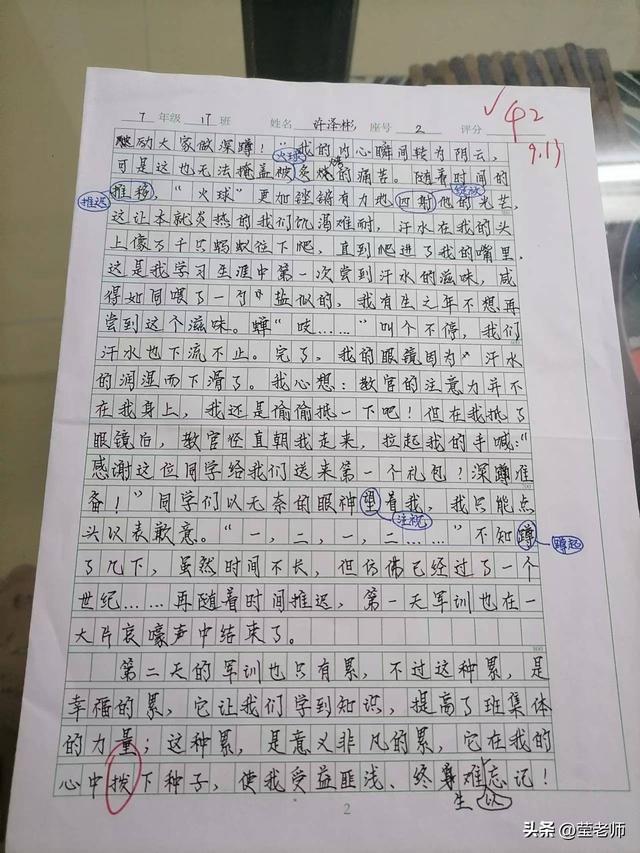 7 年级 17 班 姓名 许泽彬 座号 2 评分 42
9.13
励大家做深蹲！"我的内心瞬间转为阴云，
火球
可是这也无法掩盖被炙烤的痛苦。随着时间的
推迟 推移，"火球"更加铿锵有力地四射他的光芒，
绽放
这让本就炎热的我们饥渴难耐，汗水在我的头
上像万千只蚂蚁往下爬，直到爬进了我的嘴里，
这是我学习生涯中第一次尝到汗水的滋味，咸
得如同喂了一勺盐似的，我有生之年不想再
尝到这个滋味。蝉"吱……"叫个不停，我们
汗水也下流不止。完了，我的眼镜因为汗水
的润湿而下滑了。我心想：教官的注意力并不
在我身上，我还是偷偷抵一下吧！但在我抵了
眼镜后，教官径直朝我走来，拉起我的手喊："
感谢这位同学给我们送来第一个礼包！深蹲准
700
备！"同学们以无奈的眼神望着我，我只能点
注视
头以表歉意。"一，二，一，二……"不知蹲 蹲起
了几下，虽然时间不长，但仿佛已经过了一个
世纪……再随着时间推迟，第一天军训也在一
大片哀嚎声中结束了。
800
第二天的军训也只有累，不过这种累，是
幸福的累，它让我们学到知识，提高了班集体
的力量；这种累，是意义非凡的累，它在我的
心中拨下种子，使我受益匪浅、终难忘记！
生 以
2
头条 @莹老师